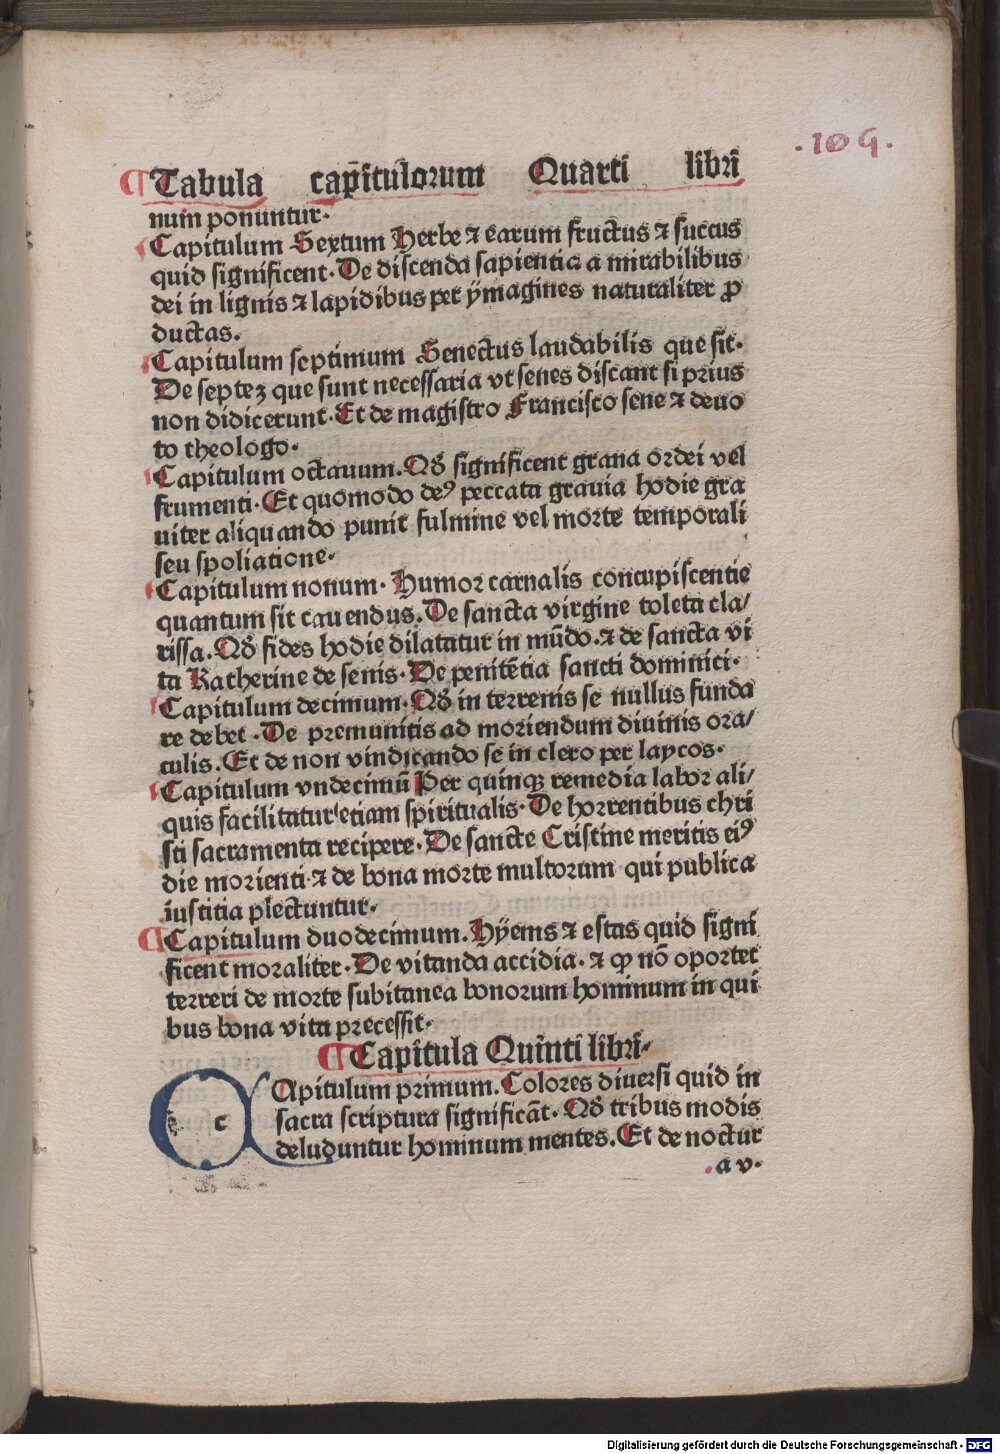 .109.
¶Tabula capĩtulorum Quarti libri
num ponuntur.
Capitulum Sextum Herbe ⁊ earum fructus ⁊ succus
quid significent. De discenda sapientia a mirabilibus
dei in lignis ⁊ lapidibus per ÿmagines naturaliter ꝓ
ductas.
Capitulum septimum Senectus laudabilis que sit.
De septeꝫ que sunt necessaria vt senes discant si prius
non didicerunt. Et de magistro Francisco sene ⁊ deuo
to theologo.
Capitulum octauum. Qđ significent grana ordei vel
frumenti. Et quomodo deꝰ peccata grauia hodie gra
uiter aliquando punit fulmine vel morte temporali
seu spoliatione.
Capitulum nonum. Humor carnalis concupiscentie
quantum sit cauendus. De sancta virgine toleta cla/
rissa. Qđ fides hodie dilatatur in mũdo. ⁊ de sancta vi
ta Katherine de senis. De penitẽtia sancti dominici.
Capitulum decimum. Qđ in terrenis se nullus funda
re debet. De premunitis ad moriendum diuinis ora/
culis. Et de non vindicando se in clero per laycos.
Capitulum vndecimũ Per quinqꝫ remedia labor ali/
quis facilitatur etiam spiritualis. De horrentibus chri
sti sacramenta recipere. De sancte Cristine meritis eiꝰ
die morienti. ⁊ de bona morte multorum qui publica
iustitia plectuntur.
¶Capitulum duodecimum. Hÿems ⁊ estas quid signi
ficent moraliter. De vitanda accidia. ⁊ ꝙ nõ oportet
terreri de morte subitanea bonorum hominum in qui
bus bona vita precessit.
¶Capitula Quinti libri.
c Apitulum primum. Colores diuersi quid in
sacra scriptura significãt. Qđ tribus modis
deluduntur hominum mentes. Et de noctur
.a v.
Digitalisierung gefördert durch die Deutsche Forschungsgemeinschaft - DFG